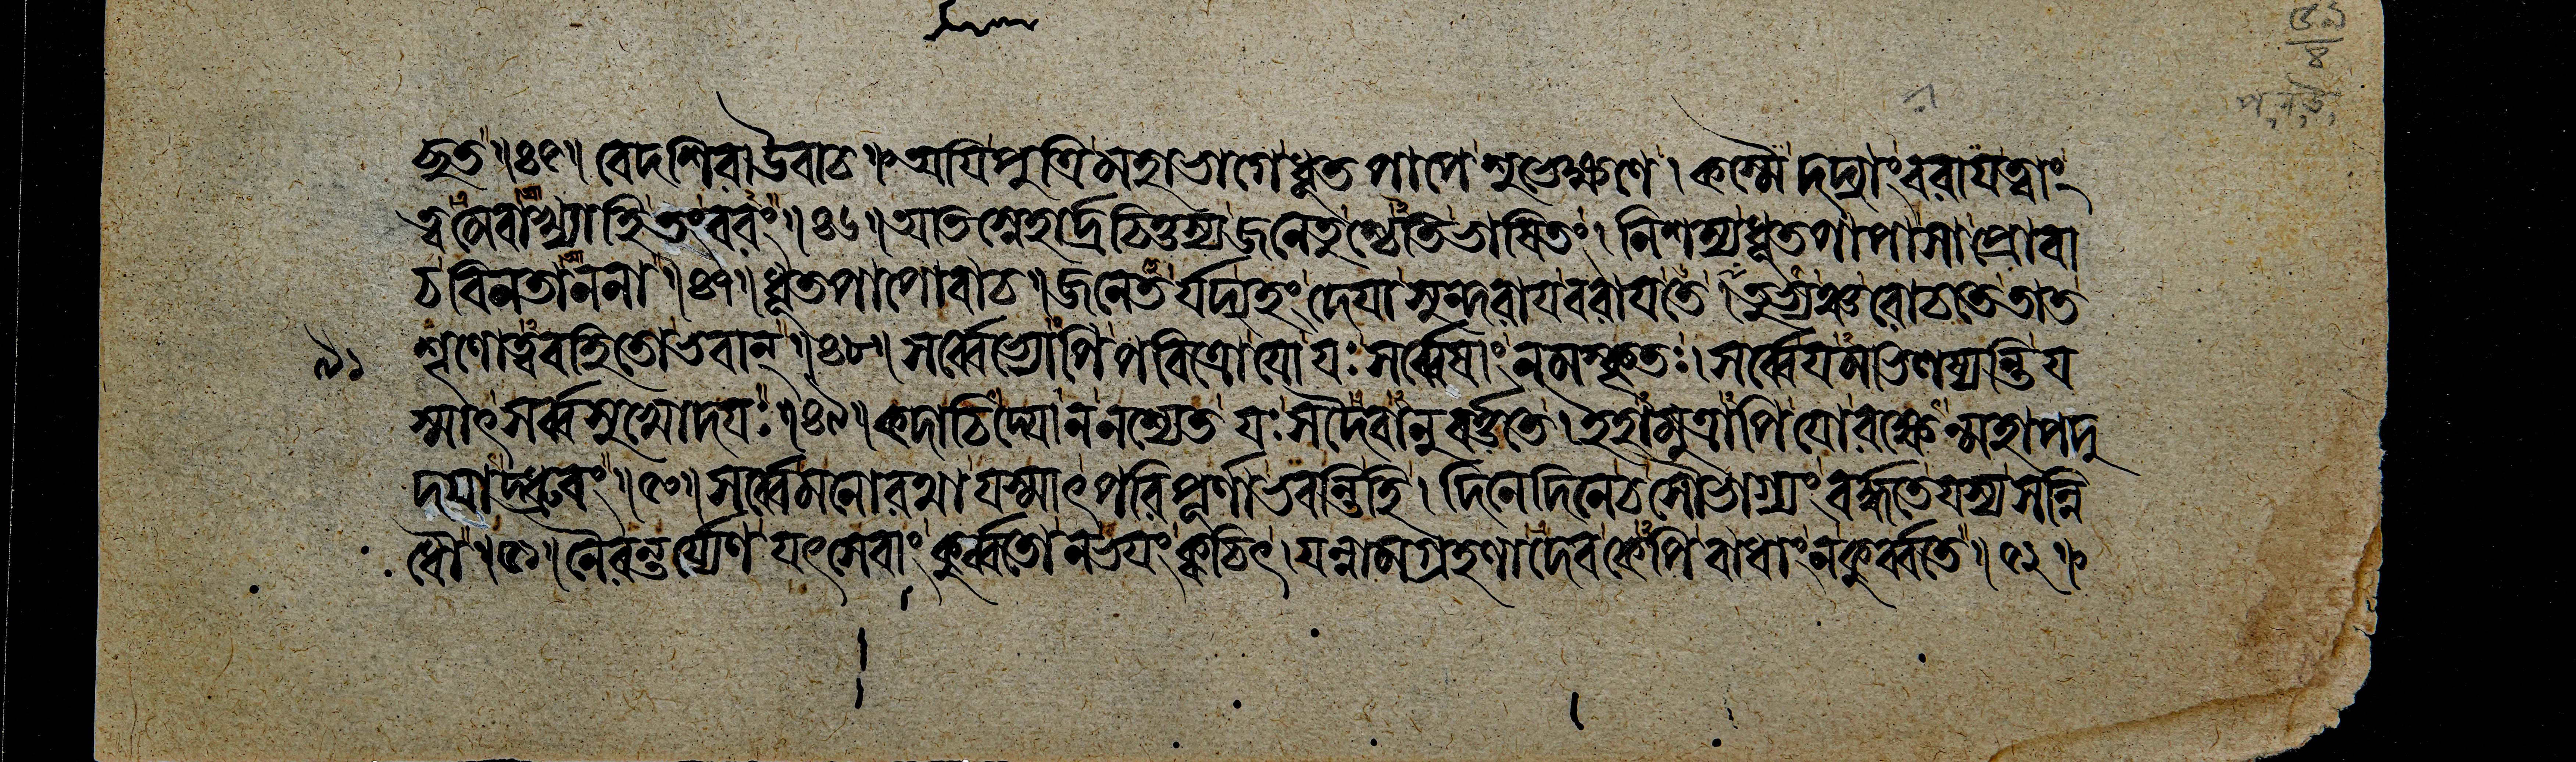 দ্ভুত ॥৪৫॥ বেদশিরা উবাচ ॥ অযি পুত্রি মহাভাগে ধূতপাপে শুভেক্ষণে । কস্মৈ দদ্যাং বরায ত্বাং
ত্বমেবাখ্যাহি তং বরং ॥৪৬॥ আত স্নেহার্দ্রচিত্তস্য জনেতুশ্চেতি ভাষিতং । নিশম্য ধূতপাপা সা প্রোবা
চ বিনতাননা ॥৪৭॥ ধূতপাপোবাচ । জনেত র্যদ্যহং দেযা সুন্দরায বরায তে । তুভ্যঞ্চ রোচতে তাত
শৃণোত্ববহিতো ভবান্ ॥৪৮॥ সর্ব্বেভ্যোপি পবিত্রো যো যঃ সর্ব্বেষাং নমস্কৃতঃ । সর্ব্বে যমভিলষ্যন্তি য
স্মাৎ সর্ব্বসুখোদযঃ ॥৪৯॥ কদাচিদ্যো ন নশ্যেত যঃ সদৈবানুবর্ত্ততে । ইহামুত্রাপি যো রক্ষেন্মহাপদু
দযাদ্ধ্রুবং ॥৫০॥ সর্ব্বে মনোরথা যস্মাৎ পরিপূর্ণা ভবন্তি হি । দিনে দিনে চ সৌভাগ্যং বর্দ্ধতে যস্য সন্নি
ধৌ ॥৫১॥ নৈরন্তর্য্যেণ যৎ সেবাং কুর্ব্বতো ন ভযং ক্বচিৎ । যন্নামগ্রহণাদেব কেপি বাধাং ন কুর্ব্বতে ॥৫২॥